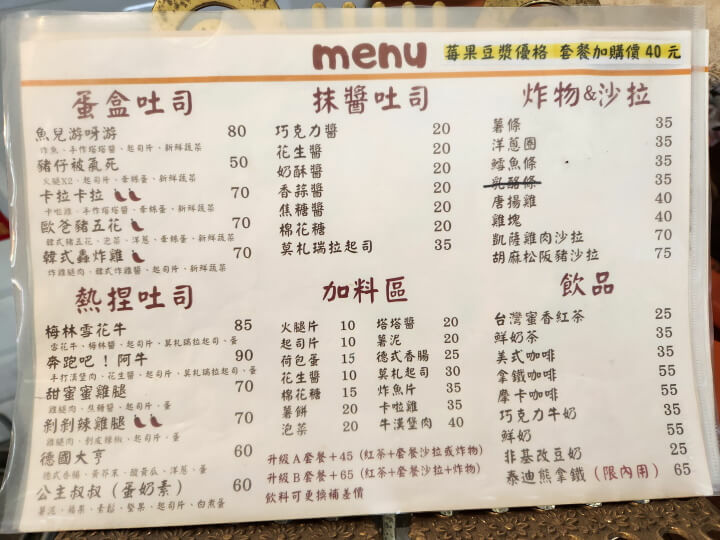 menu
莓果豆漿優格 套餐加購價40元
蛋盒吐司
魚兒游呀游 80
炸魚、手作塔塔醬、起司片、新鮮蔬菜
豬仔被氣死 50
火腿X2、起司片、牽絲蛋、新鮮蔬菜
卡拉卡拉 70
卡啦雞、手作塔塔醬、牽絲蛋、新鮮蔬菜
歐爸豬五花 70
韓式豬五花、泡菜、洋蔥、牽絲蛋、新鮮蔬菜
韓式轟炸雞 70
炸雞腿肉、韓式炸雞醬、起司片、新鮮蔬菜
抹醬吐司
巧克力醬 20
花生醬 20
奶酥醬 20
香蒜醬 20
焦糖醬 20
棉花糖 20
莫札瑞拉起司 35
炸物&沙拉
薯條 35
洋蔥圈 35
鱈魚條 35
乳酪條 35
唐揚雞 40
雞塊 40
凱薩雞肉沙拉 70
胡麻松阪豬沙拉 75
熱捏吐司
梅林雪花牛 85
雪花牛、梅林醬、起司片、莫札瑞拉起司、蛋
奔跑吧！阿牛 90
手打漢堡肉、花生醬、起司片、莫札瑞拉起司、蛋
甜蜜蜜雞腿 70
雞腿肉、焦糖醬、起司片、蛋
剁剁辣雞腿 70
雞腿肉、剁皮辣椒、起司片、蛋
德國大亨 60
德式香腸、黃芥末、酸黃瓜、洋蔥、蛋
公主叔叔（蛋奶素） 60
薯泥、蘋果、素鬆、堅果、起司片、白煮蛋
加料區
火腿片 10
起司片 10
荷包蛋 15
花生醬 10
棉花糖 15
薯餅 20
泡菜 20
塔塔醬 20
薯泥 20
德式香腸 25
莫札起司 30
炸魚片 35
卡啦雞 35
牛漢堡肉 40
升級A套餐+45（紅茶+套餐沙拉或炸物）
升級B套餐+65（紅茶+套餐沙拉+炸物）
飲料可更換補差價
飲品
台灣蜜香紅茶 25
鮮奶茶 35
美式咖啡 35
拿鐵咖啡 55
摩卡咖啡 55
巧克力牛奶 35
鮮奶 55
非基改豆奶 25
泰迪熊拿鐵（限內用） 65